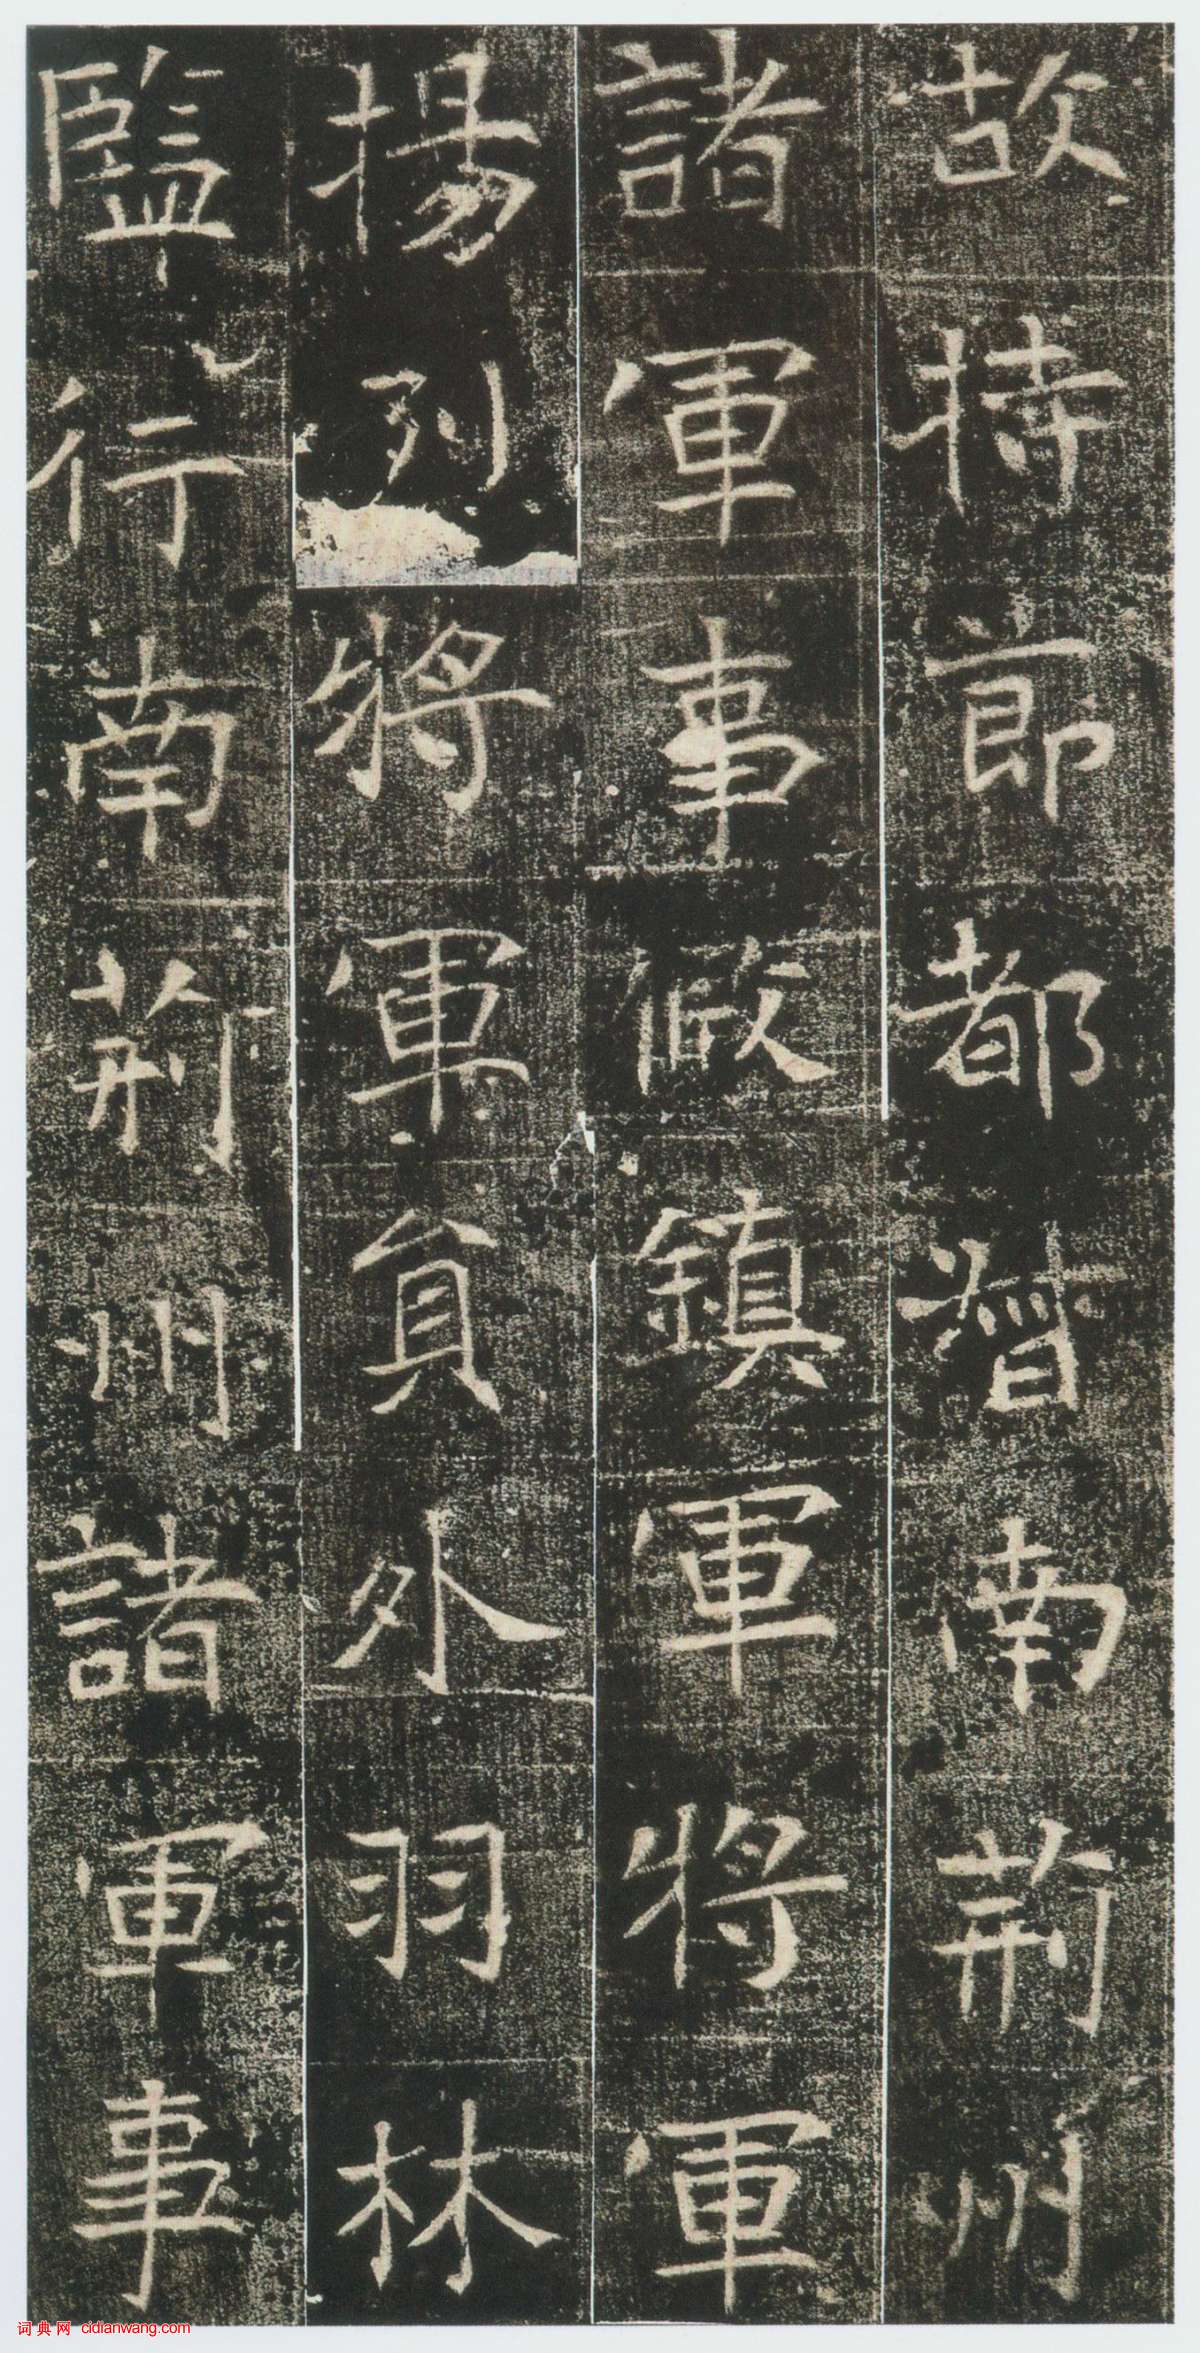 故持節都督南荊州
諸軍事假鎮軍將軍
揚列將軍員外羽林
監行南荊州諸軍事
词典网 cidianwang.com